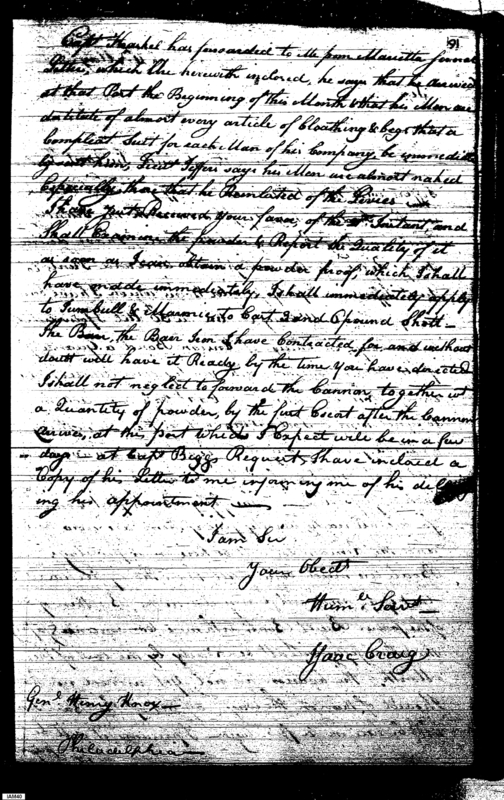 191
Capt Haskel has forwarded to Me from Marietta
Letter, which Ure herewith inclosed, he says that he arrived
at that Post the Beginning of this Month & that his Men are
destitute of almost every article of Cloathing & begs that a
Compleat Suit for each Man of his Company be
him, Lieut Jeffers says his Men are almost naked
Especially those that he Reinlisted of the Levies
I have just Received Your favor of the Instant, and
Shall Examine the powder & Report the Quality of it
as soon as I can obtain a powder proof, which I shall
have made immediately, I shall immediately apply
to Turnbull & Marmie to Cast 3 and 6 pound Shott
the Barr Iron I have Contracted for and without
doubt will have it Ready by the time You have directed
I shall not neglect to forward the Cannon, together wt
a Quantity of powder, by the first Escort after the Cannon
arives, at this post which I Expect will be in a few
days — at Capt Biggs Request, I have inclosed a
Copy of his Letter to me informing me of his
ing his appointment
I am Sir
Your Obedt
Humle Servt
Isaac Craig
Genl Henry Knox
Philadelphia